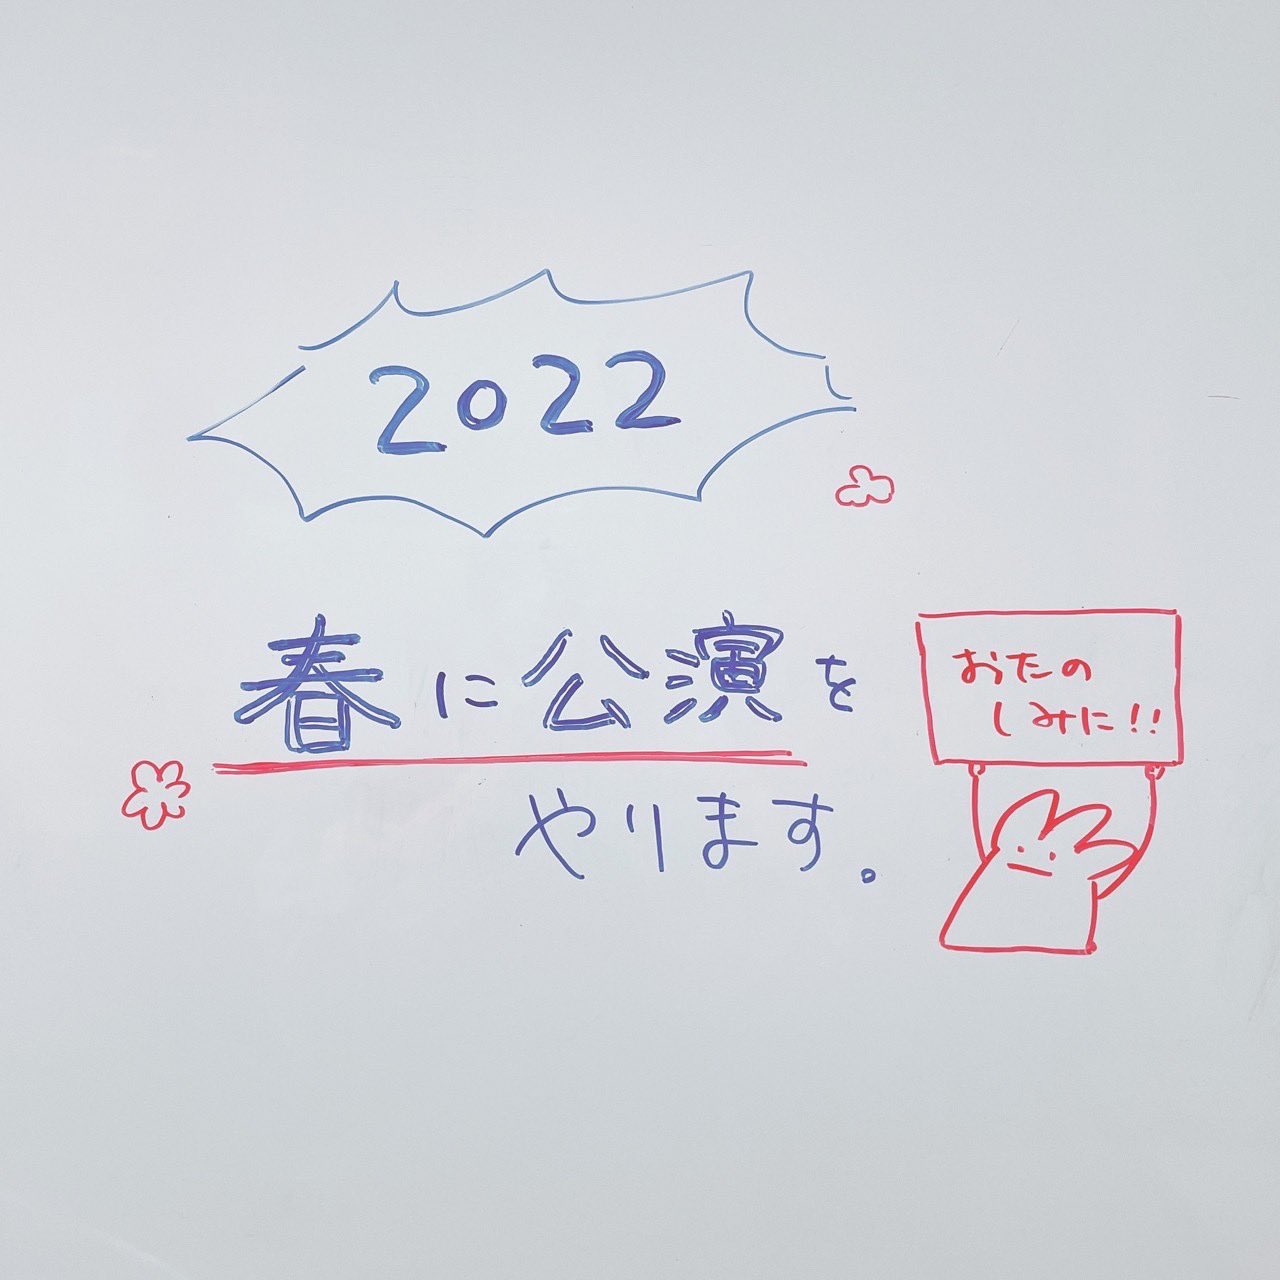 2022
春に公演を
やります。
おたの
しみに!!